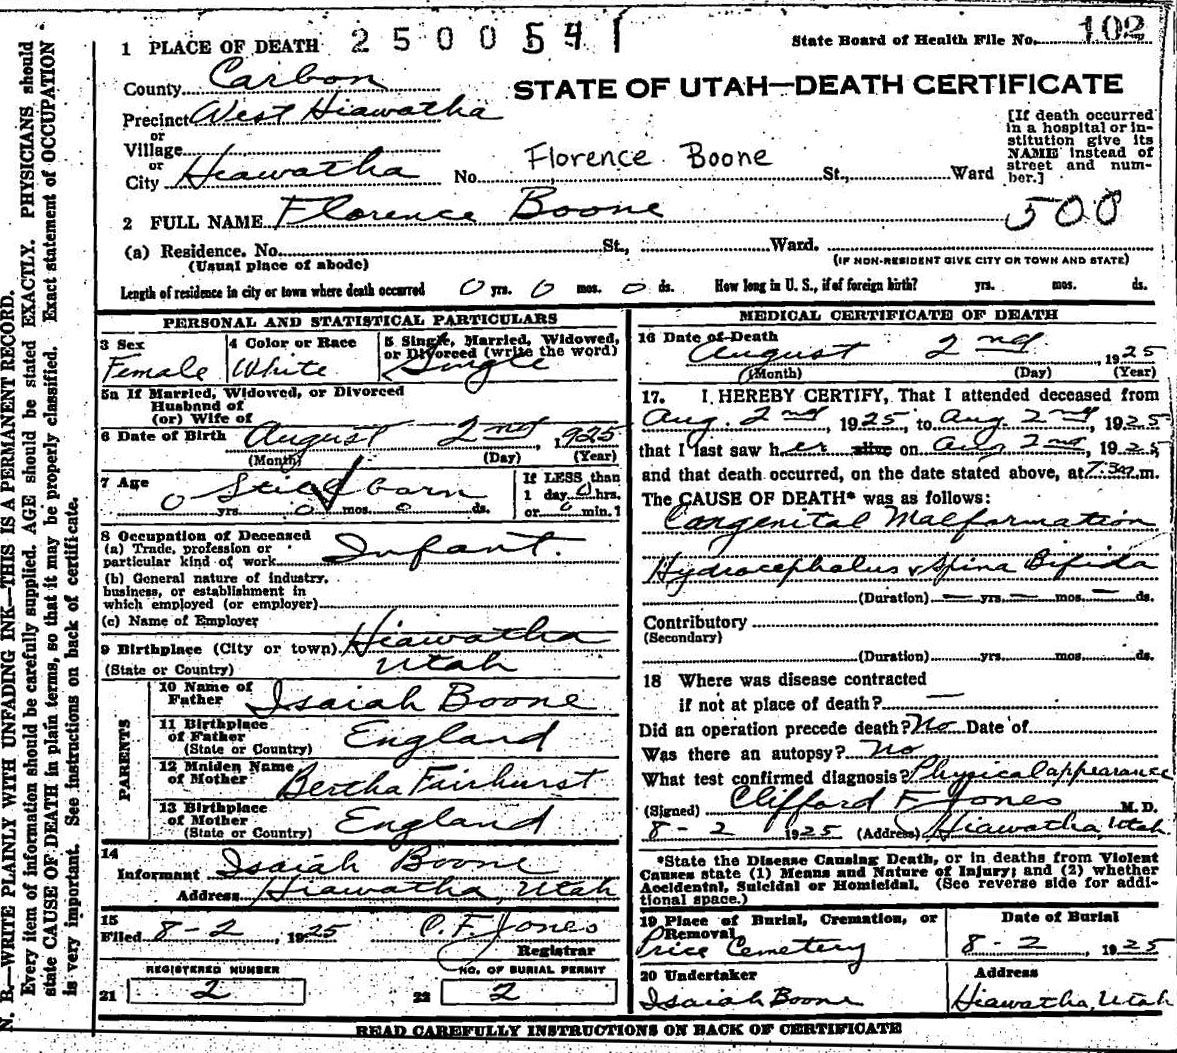 N. B.—WRITE PLAINLY WITH UNFADING INK—THIS IS A PERMANENT RECORD.
Every item of information should be carefully supplied. AGE should be stated EXACTLY. PHYSICIANS should
state CAUSE OF DEATH in plain terms, so that it may be properly classified. Exact statement of OCCUPATION
is very important. See instructions on back of certificate.
1 PLACE OF DEATH 2500541
State Board of Health File No. 102
County Carbon
STATE OF UTAH—DEATH CERTIFICATE
Precinct West Hiawatha
or
Village
or
City Hiawatha No. Florence Boone St., Ward
[If death occurred
in a hospital or in-
stitution give its
NAME instead of
street and num-
ber.]
2 FULL NAME Florence Boone
500
(a) Residence. No. St., Ward.
(Usual place of abode) (IF NON-RESIDENT GIVE CITY OR TOWN AND STATE)
Length of residence in city or town where death occurred 0 yrs. 0 mos. 0 ds. How long in U. S., if of foreign birth? yrs. mos. ds.
PERSONAL AND STATISTICAL PARTICULARS
3 Sex
Female
4 Color or Race
White
5 Single, Married, Widowed,
or Divorced (write the word)
Single
5a If Married, Widowed, or Divorced
Husband of
(or) Wife of
6 Date of Birth August 2nd 1925
(Month) (Day) (Year)
7 Age Still born
0 yrs. 0 mos. 0 ds.
If LESS than
1 day 0 hrs.
or 0 min.1
8 Occupation of Deceased
(a) Trade, profession or
particular kind of work Infant.
(b) General nature of industry,
business, or establishment in
which employed (or employer)
(c) Name of Employer
9 Birthplace (City or town) Hiawatha
(State or Country) Utah
PARENTS
10 Name of
Father Isaiah Boone
11 Birthplace
of Father England
(State or Country)
12 Maiden Name
of Mother Bertha Fairhurst
13 Birthplace
of Mother England
(State or Country)
14
Informant Isaiah Boone
Address Hiawatha, Utah
15
Filed 8-2, 1925 C. F. Jones
Registrar
REGISTERED NUMBER
21 2
NO. OF BURIAL PERMIT
22 2
MEDICAL CERTIFICATE OF DEATH
16 Date of Death
August 2nd 1925
(Month) (Day) (Year)
17. I HEREBY CERTIFY, That I attended deceased from
Aug. 2nd, 1925, to Aug. 2nd, 1925
that I last saw her alive on Aug 2nd, 1925,
and that death occurred, on the date stated above, at m.
The CAUSE OF DEATH* was as follows:
Congenital Malformation
Hydrocephalus & Spina Bifida
(Duration) — yrs. — mos. — ds.
Contributory
(Secondary)
(Duration) yrs. mos. ds.
18 Where was disease contracted
if not at place of death? —
Did an operation precede death? No Date of
Was there an autopsy? No
What test confirmed diagnosis? Physical appearance
(Signed) Clifford F. Jones M. D.
8-2 1925 (Address) Hiawatha, Utah
*State the Disease Causing Death, or in deaths from Violent
Causes state (1) Means and Nature of Injury; and (2) whether
Accidental, Suicidal or Homicidal. (See reverse side for addi-
tional space.)
19 Place of Burial, Cremation, or
Removal
Price Cemetery
Date of Burial
8-2, 1925
20 Undertaker
Isaiah Boone
Address
Hiawatha, Utah
READ CAREFULLY INSTRUCTIONS ON BACK OF CERTIFICATE